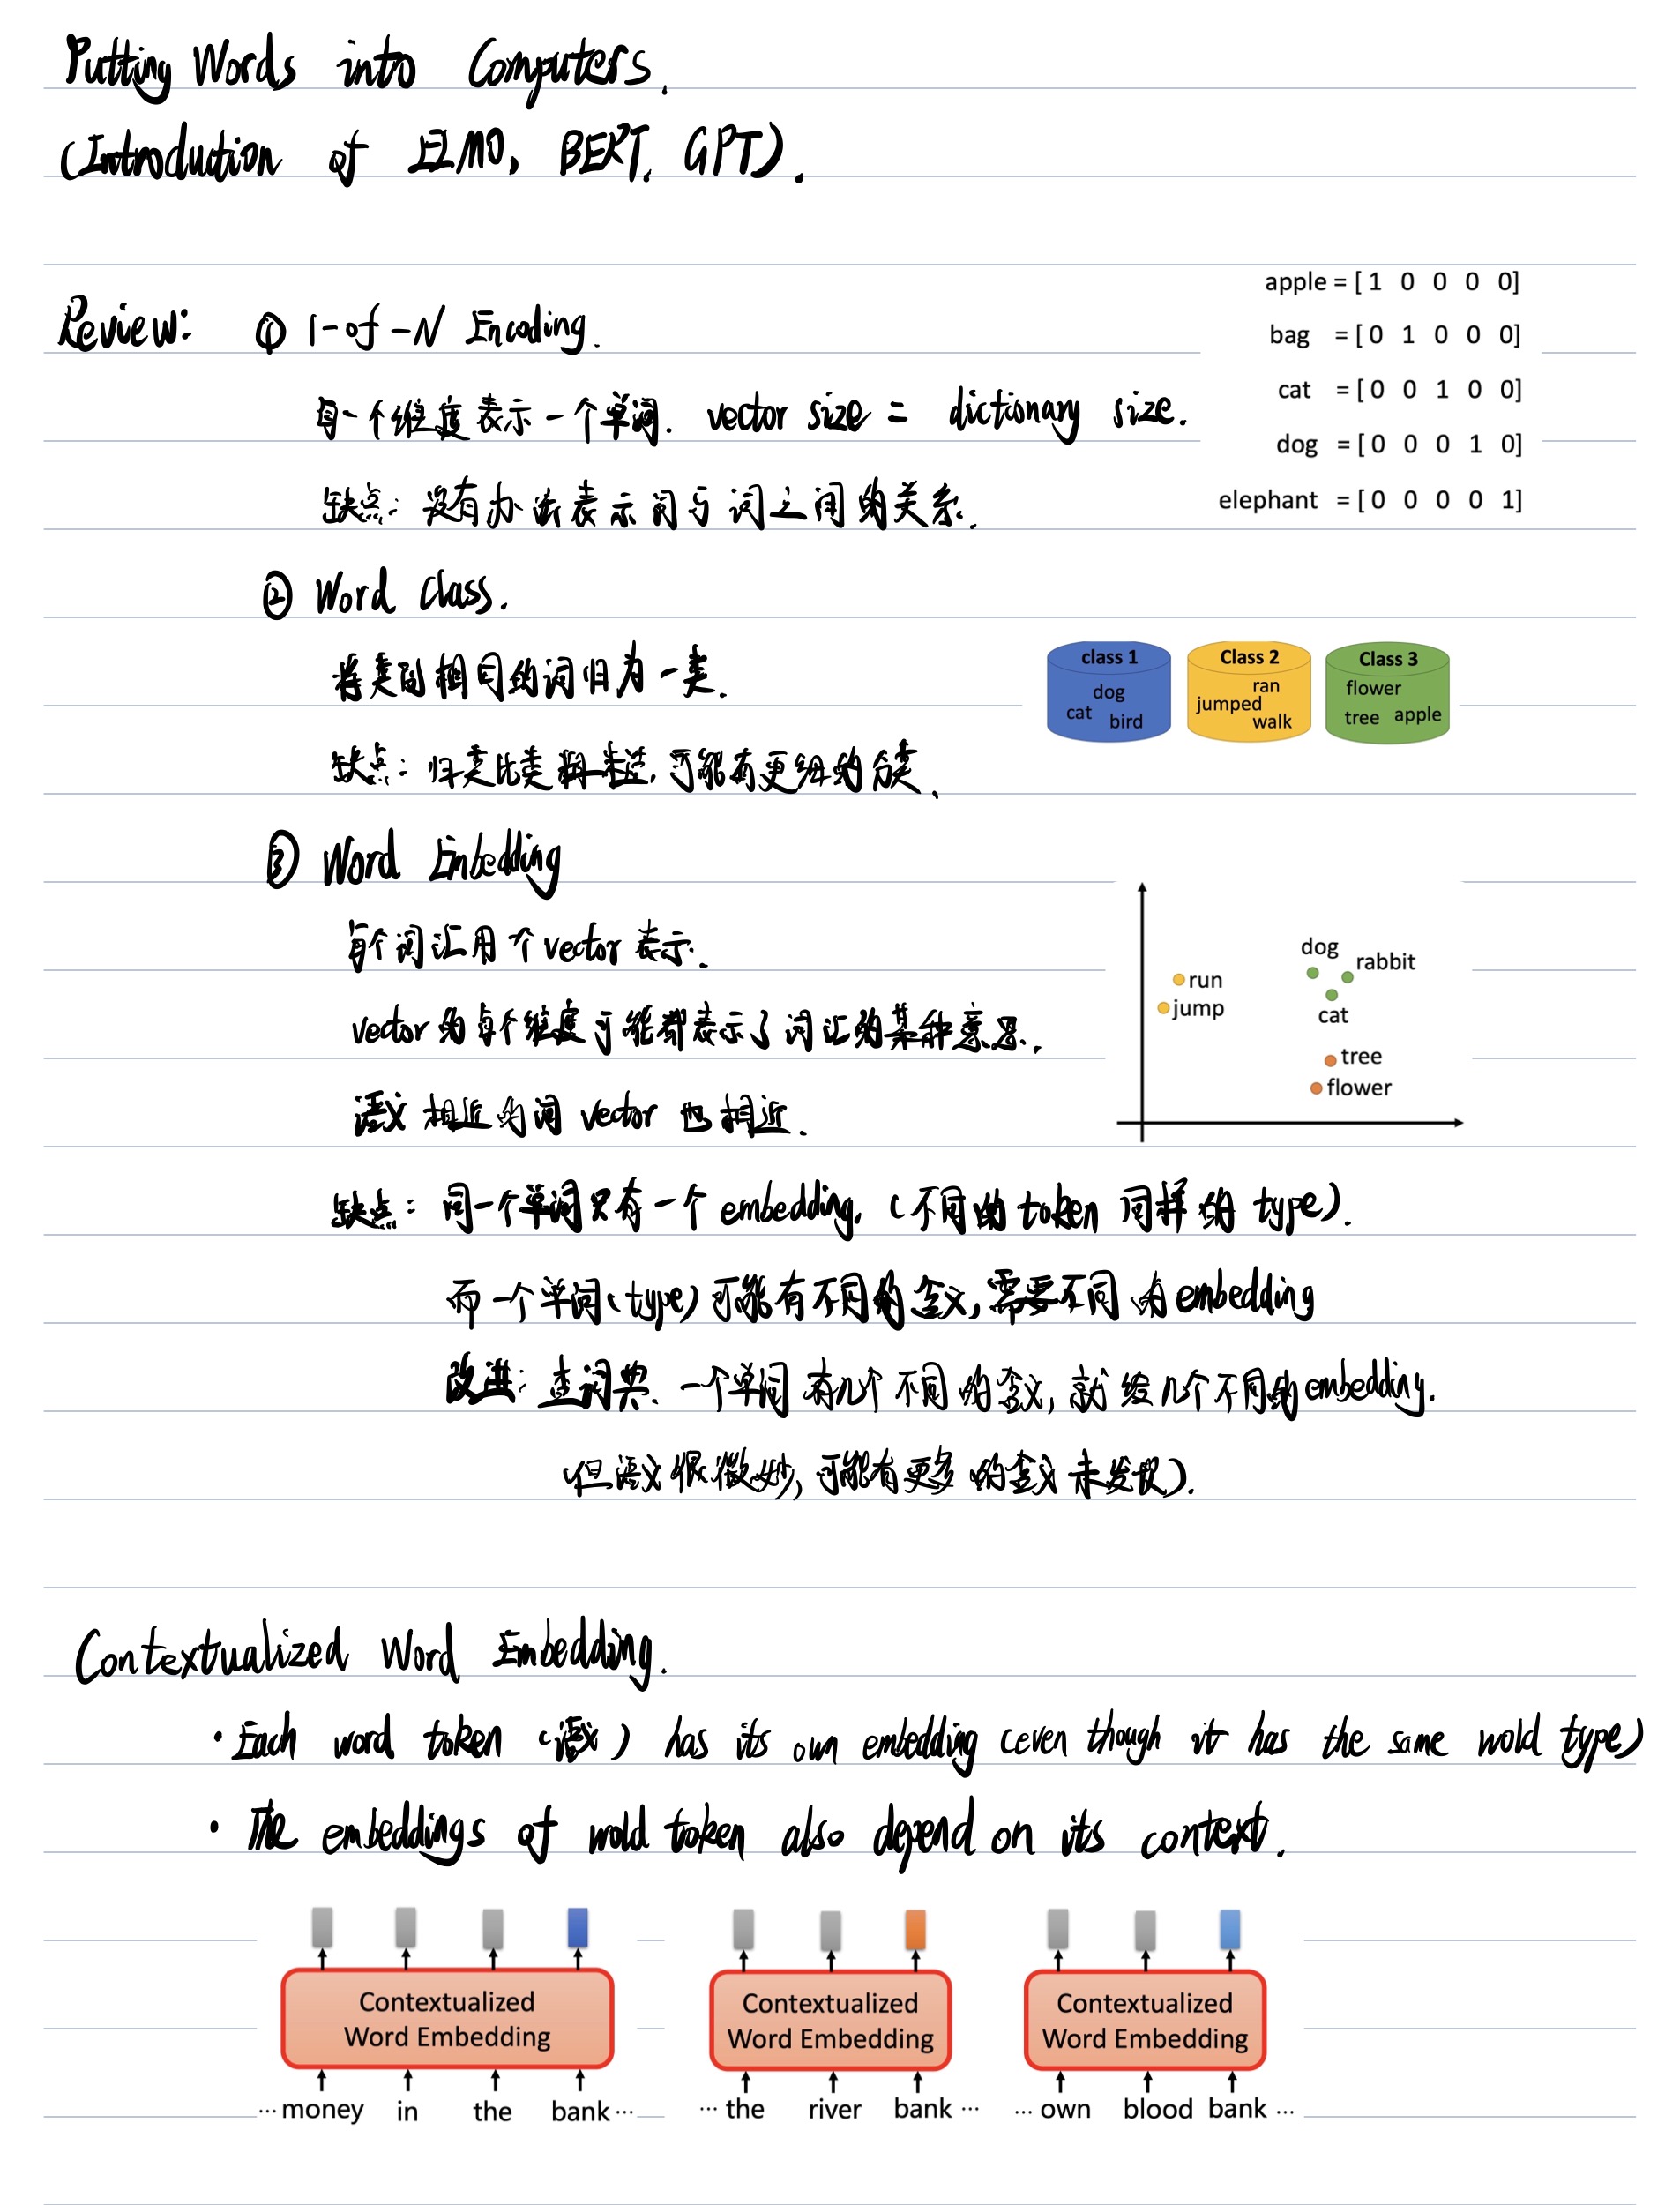 Putting Words into Computers.
(Introduction of ELMO, BERT, GPT).
Review: ① 1-of-N Encoding.
每一个维度表示一个单词. vector size = dictionary size.
缺点: 没有办法表示词与词之间的关系.
apple = [ 1 0 0 0 0]
bag = [ 0 1 0 0 0]
cat = [ 0 0 1 0 0]
dog = [ 0 0 0 1 0]
elephant = [ 0 0 0 0 1]
② Word Class.
将类别相同的词归为一类.
缺点: 归类比类粗糙, 可能有更细的分类.
class 1
dog
cat
bird
Class 2
ran
jumped
walk
Class 3
flower
tree apple
③ Word Embedding
每个词汇用个vector表示.
vector的每个维度可能都表示了词汇的某种意思.
语义相近的词vector也相近.
dog
rabbit
run
jump
cat
tree
flower
缺点: 同一个单词只有一个embedding. (不同的token同样的type).
而一个单词(type)可能有不同的含义, 需要不同的embedding
改进: 查词典. 一个单词有几个不同的含义, 就给几个不同的embedding.
(但语义很微妙, 可能有更多的含义未发现).
Contextualized Word Embedding.
· Each word token (语义) has its own embedding (even though it has the same wold type)
· The embeddings of wold token also depend on its context.
Contextualized
Word Embedding
… money in the bank …
Contextualized
Word Embedding
… the river bank …
Contextualized
Word Embedding
… own blood bank …